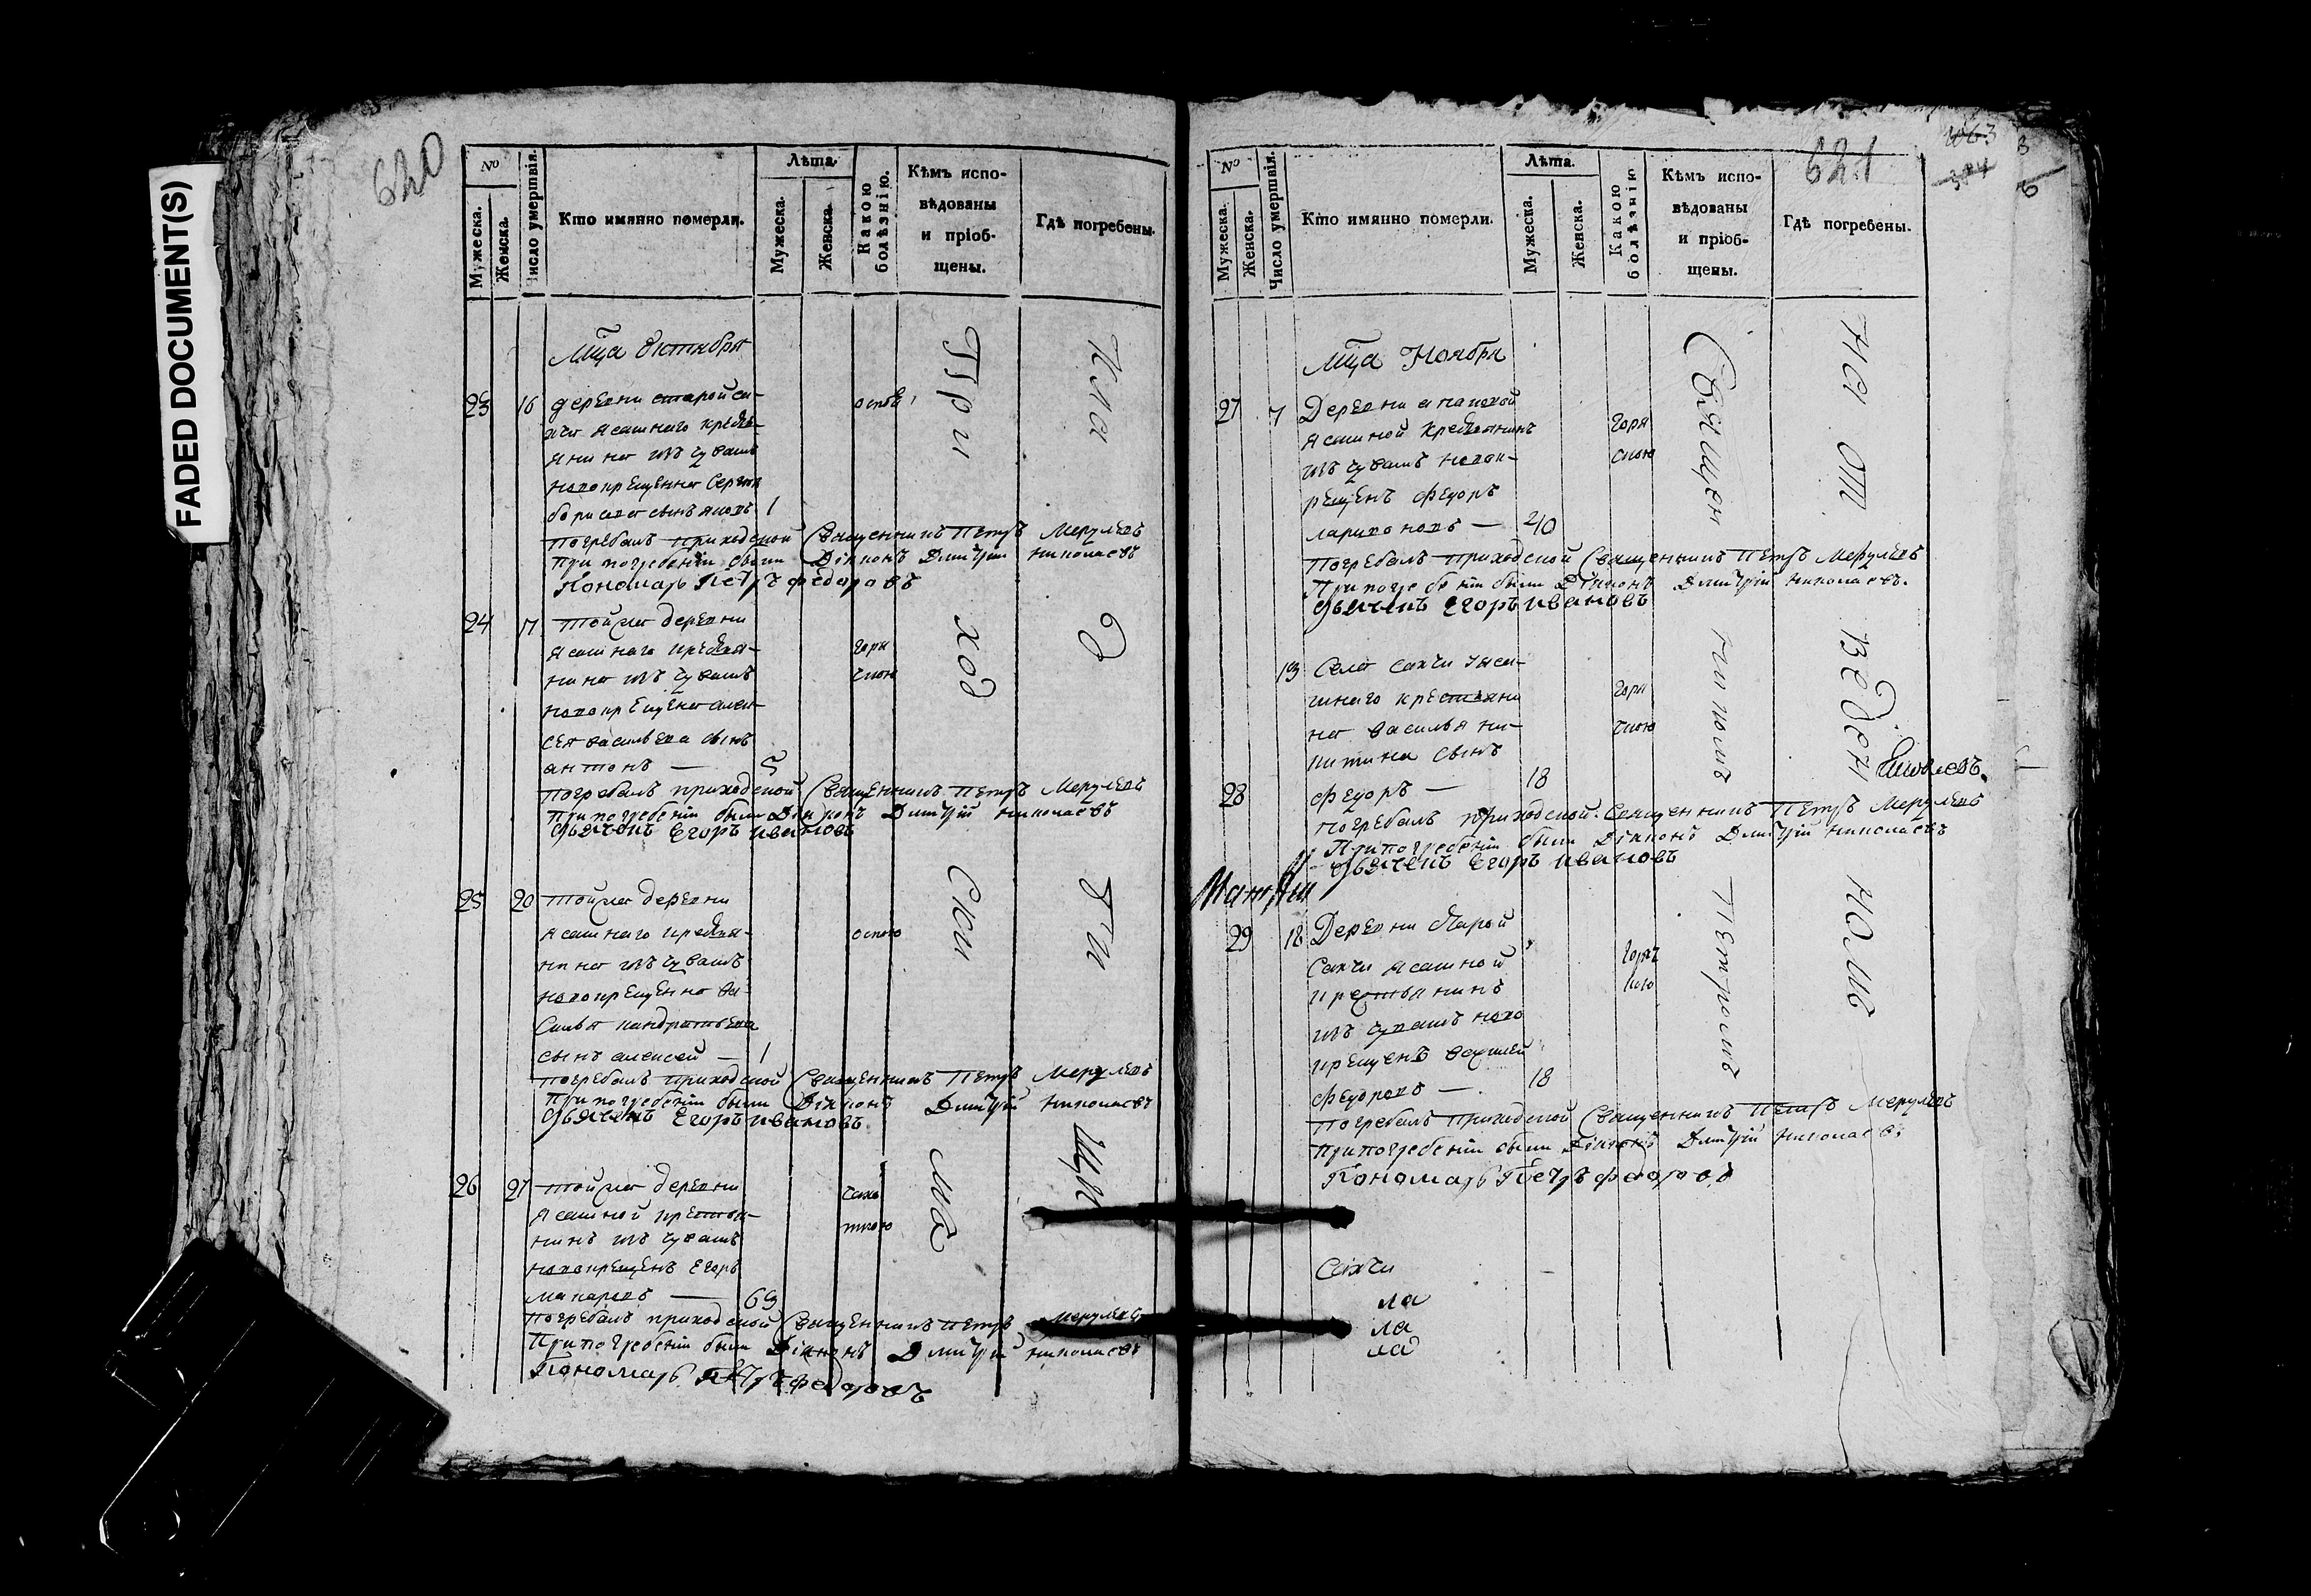 FADED DOCUMENT(S)
620
№
Мужеска.
Женска.
Число умертвія.
Кто имянно померли.
Лѣта.
Мужеска.
Женска.
Какою
болѣзнію.
Кѣмъ испо-
вѣдованы
и пріоб-
щены.
Гдѣ погребены.
Мца Октября
23 16 деревни старой са-
хчи ясашнаго кресть-
янина изъ чувашъ
новокрещенна Сергея
борисова сынъ яковъ 1
оспою
погребалъ приходской Священникъ Петръ Меркульевъ
При погребеніи были Діаконъ Димитрій Николаевъ
Пономарь Петръ Федоровъ
24 17 той же деревни
ясашнаго крестья-
нина изъ чувашъ
новокрещена алек-
сея васильева сынъ
антонъ — 5
горя
чкою
погребалъ приходской Священникъ Петръ Меркульевъ
При погребеніи были Діаконъ Димитрій Николаевъ
Дьячекъ Егоръ Ивановъ
25 20 той же деревни
ясашнаго крестья-
нина изъ чувашъ
новокрещенна ва-
силья кандратьева
сынъ алексей — 1
оспою
погребалъ приходской Священникъ Петръ Меркульевъ
При погребеніи были Діаконъ Димитрій Николаевъ
Дьячекъ Егоръ Ивановъ
26 27 той же деревни
ясашной крестья-
нинъ изъ чувашъ
новокрещенъ Егоръ
макаровъ — 69
чахо
ткою
погребалъ приходской Священникъ Петръ Меркульевъ
При погребеніи были Діаконъ Димитрій Николаевъ
Пономарь Петръ Федоровъ
При
ход
ски
ма
кла
д
би
щи
621
№
Мужеска.
Женска.
Число умертвія.
Кто имянно померли.
Лѣта.
Мужеска.
Женска.
Какою
болѣзнію
Кѣмъ испо-
вѣдованы
и пріоб-
щены.
Гдѣ погребены.
Мца Ноября
27 7 Деревни
ясашной крестьянинъ
изъ чувашъ новок-
рещенъ Федоръ
ларивоновъ — 40
горя
чкою
погребалъ приходской Священникъ Петръ Меркульевъ
При погребеніи были Діаконъ Димитрій Николаевъ.
Дьячекъ Егоръ Ивановъ
13 Села сахчи яса-
шнаго крестьяни
на василья ни-
китина сынъ
28 Федоръ — 18
горя
чкою
погребалъ приходской Священникъ Петръ Меркульевъ
При погребеніи были Діаконъ Димитрій Николаевъ
Дьячекъ Егоръ Ивановъ
29 18 Деревни Старой
Сахчи ясашной
крестьянинъ
изъ чувашъ ново
крещенъ
Федоровъ — 18
горяч
кою
погребалъ приходской Священникъ Петръ Меркульевъ
При погребеніи были Діаконъ Димитрій Николаевъ
Пономарь Петръ Федоровъ
Сахчи
ла
ла
ла
Священ
никомъ
Петромъ
на от
веден
номъ